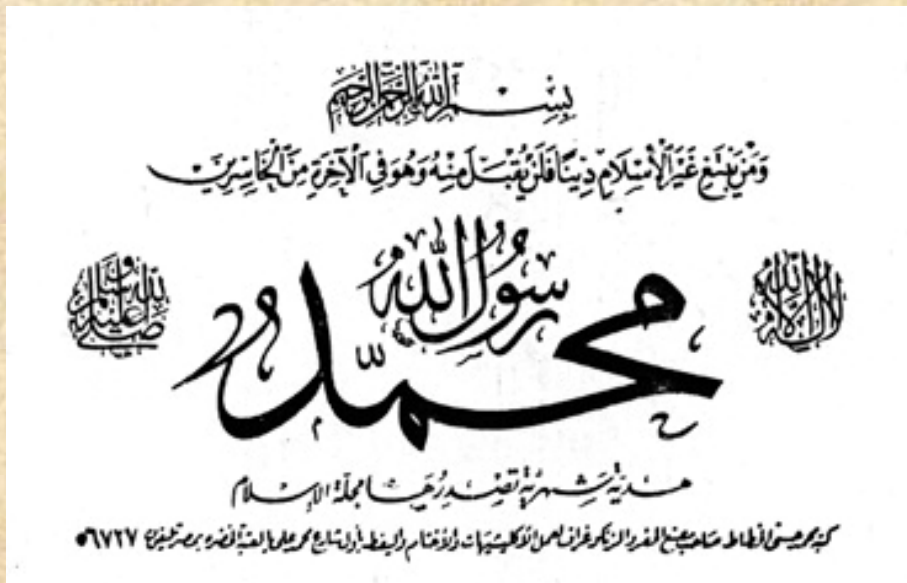 بِسْمِ اللَّهِ الرَّحْمَنِ الرَّحِيمِ
وَمَنْ يَبْتَغِ غَيْرَ الْأِسْلَامِ دِينًا فَلَنْ يُقْبَلَ مِنْهُ وَهُوَ فِي الْآخِرَةِ مِنَ الْخَاسِرِينَ
لا إله إلا الله
محمد رسول الله
صلى الله عليه وسلم
هدية شهرية تصدرها مجلة الإسلام
كتبه محمد حسنى الخطاط صاحب مصنع الحفر والزنكوغراف لعمل الأكلیشیهات والأختام واليفط بأول شارع محمد على بالعتبة الخضره بمصر تليفون ٥٦٧٢٧